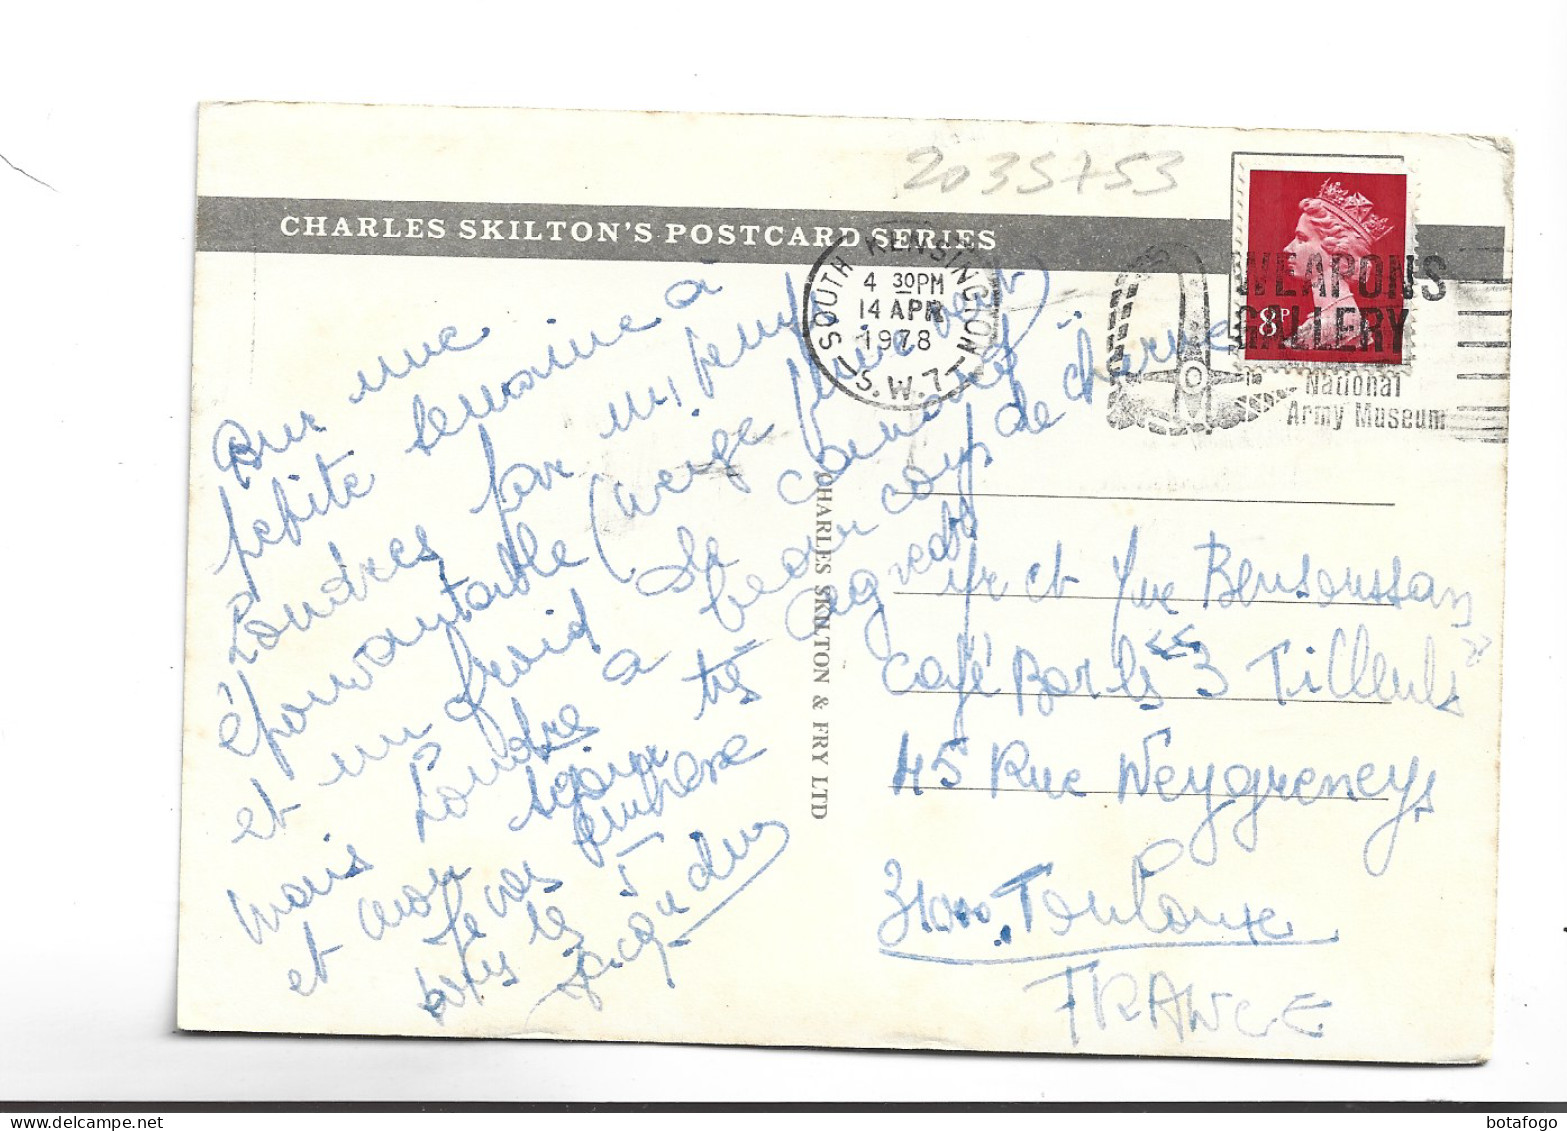 2035753
CHARLES SKILTON'S POSTCARD SERIES
SOUTH KENSINGTON
4 30PM
14 APR
1978
S.W.7
8P
WEAPONS
GALLERY
National
Army Museum
une
petite semaine à
Londres par un temps
épouvantable (neige pluie vent)
et un froid de canard
mais Londres a beaucoup de charme
et mon séjour très agréable
Je vous embrasse
tous les 5
CHARLES SKILTON & FRY LTD
Mr et Mme Bensoussan
Café Bar les "3 Tilleuls"
45 Rue
31000. Toulouse
FRANCE
botafogo